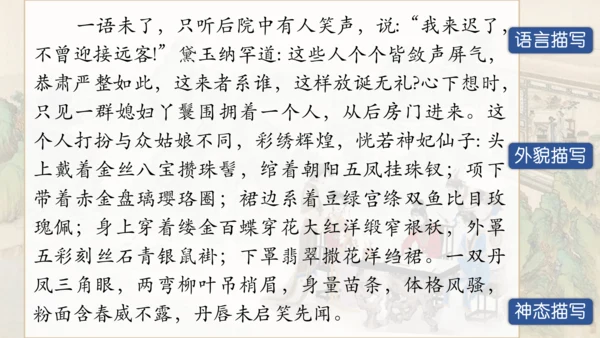 一语未了，只听后院中有人笑声，说：“我来迟了，
不曾迎接远客！”黛玉纳罕道：这些人个个皆敛声屏气，
恭肃严整如此，这来者系谁，这样放诞无礼？心下想时，
只见一群媳妇丫鬟围拥着一个人，从后房门进来。这
个人打扮与众姑娘不同，彩绣辉煌，恍若神妃仙子：头
上戴着金丝八宝攒珠髻，绾着朝阳五凤挂珠钗；项下
带着赤金盘璃璎珞圈；裙边系着豆绿宫绦双鱼比目玫
瑰佩；身上穿着缕金百蝶穿花大红洋缎窄裉袄，外罩
五彩刻丝石青银鼠褂；下罩翡翠撒花洋绉裙。一双丹
凤三角眼，两弯柳叶吊梢眉，身量苗条，体格风骚，
粉面含春威不露，丹唇未启笑先闻。
语言描写
外貌描写
神态描写